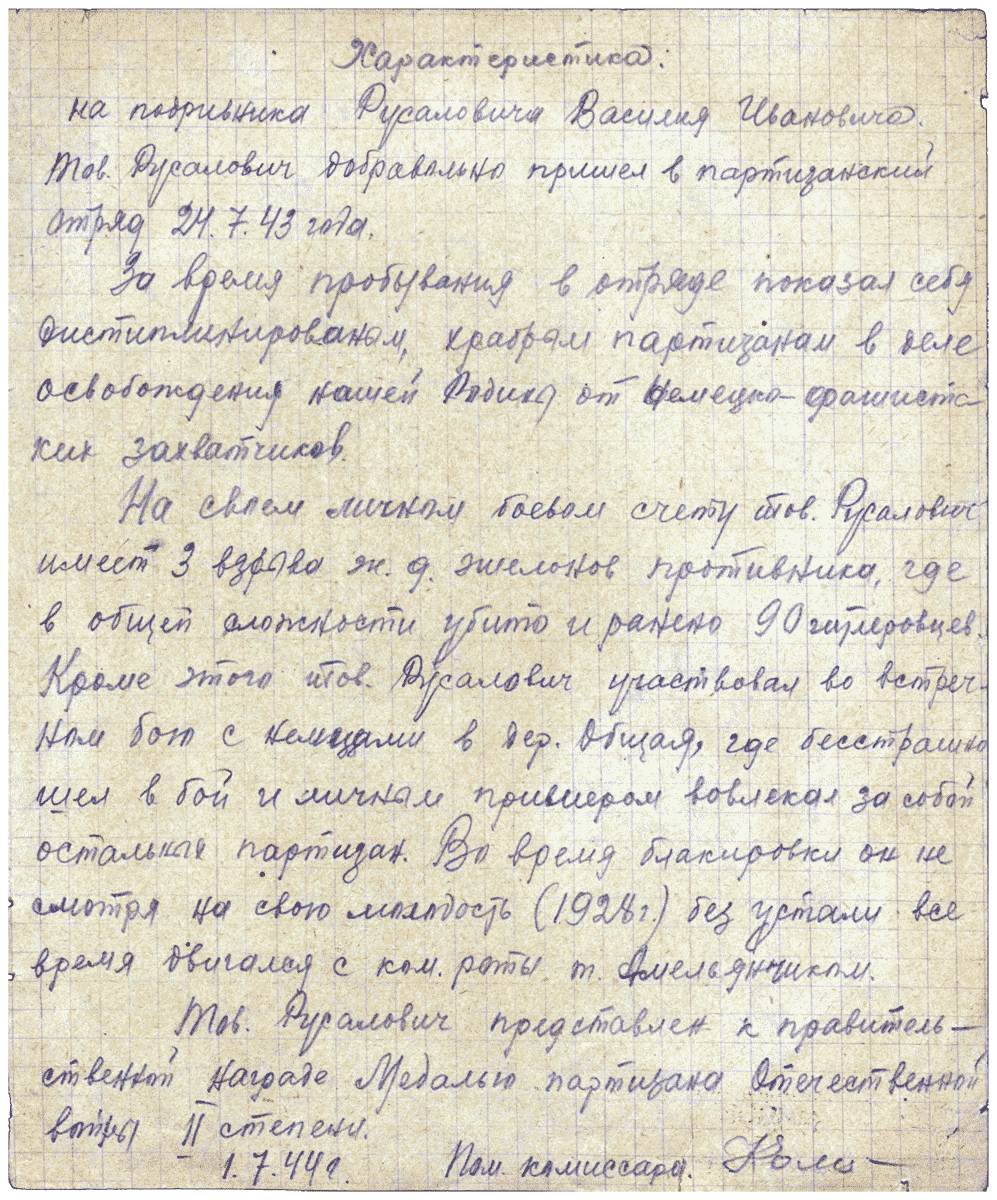 Характеристика.
на подрывника Русаловича Василия Ивановича.
Тов. Русалович добравольно пришел в партизанский
отряд 24.7.43 года.
За время пробывания в отряде показал себя
дистиплинированам, храбрым партизанам в деле
освобождения нашей Родины от немецко-фашистс-
ких захватчиков.
На своем личном боевом счету тов. Русалович
имеет 3 взрыва ж. д. эшелонов противника, где
в общей сложности убито и ранено 90 гитлеровцев.
Кроме этого тов. Русалович участвовал во встреч-
ном бою с немцами в дер. Общая, где бесстрашно
шел в бой и личным примером вовлекал за собой
остальных партизан. Во время блакировки он не
смотря на свою молодость (1928 г.) без устали все
время двигался с ком. роты т. Амельянчиком.
Тов. Русалович представлен к правитель-
ственной награде Медалью партизана Отечественной
войны II степени.
1.7.44 г. Пом. комиссара.